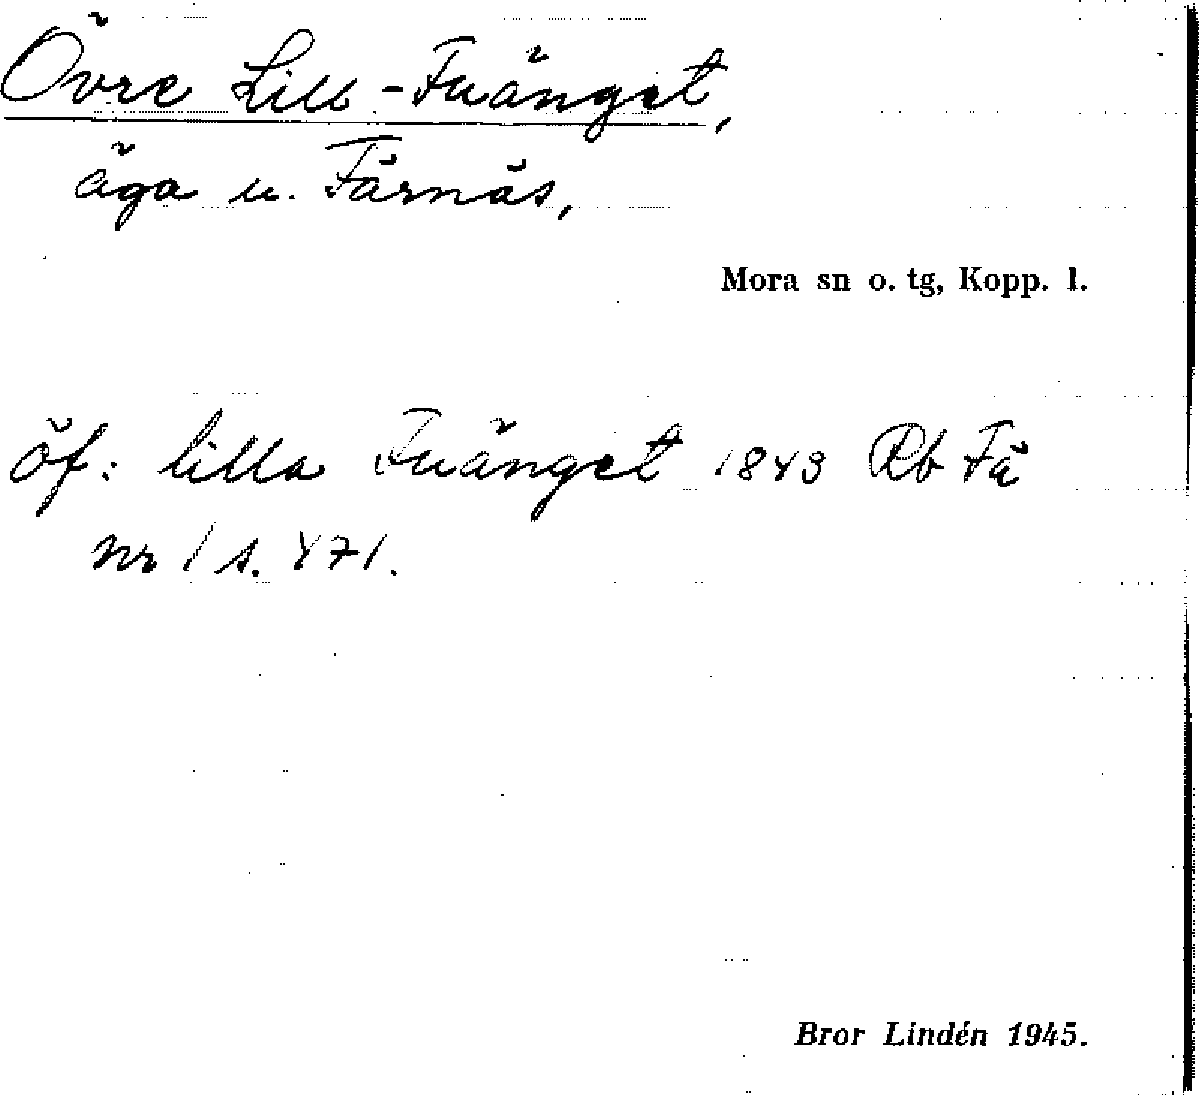 Övre Lill-Fuänget,
äga u. Färnäs,
Mora sn o. tg, Kopp. l.
öf: lilla Fuänget 1843 Rb Fä
nr 1 s. 471.
Bror Lindén 1945.